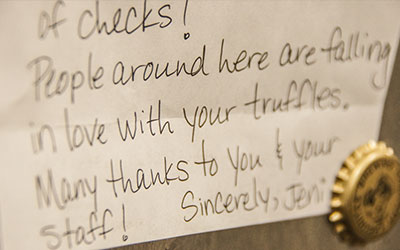 of checks!
People around here are falling
in love with your truffles.
Many thanks to you & your
staff! Sincerely, Jeni